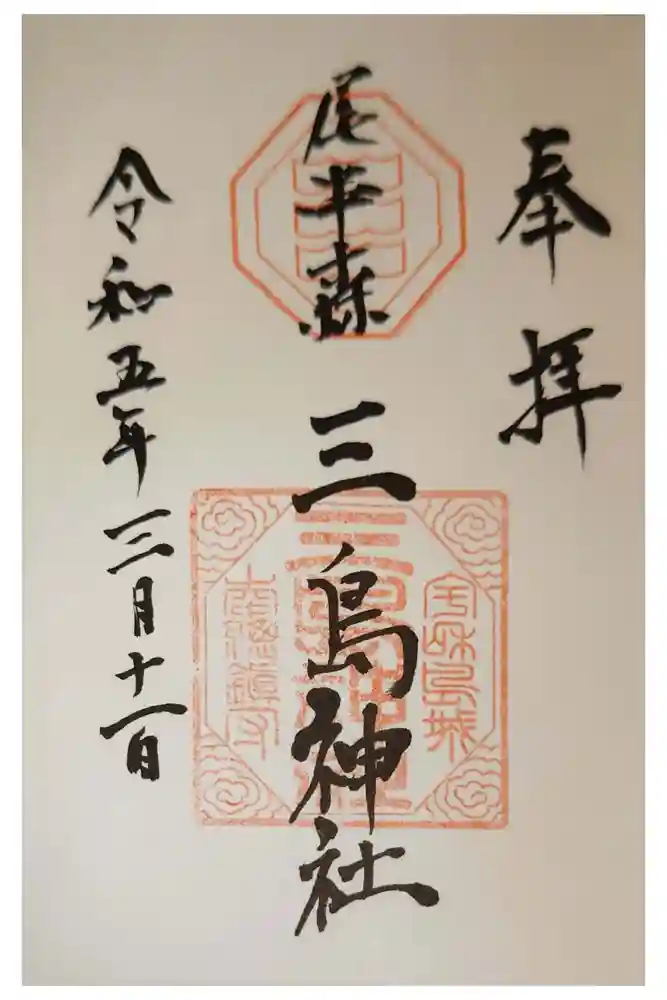 奉拝
尾半森
三島神社
令和五年三月十一日